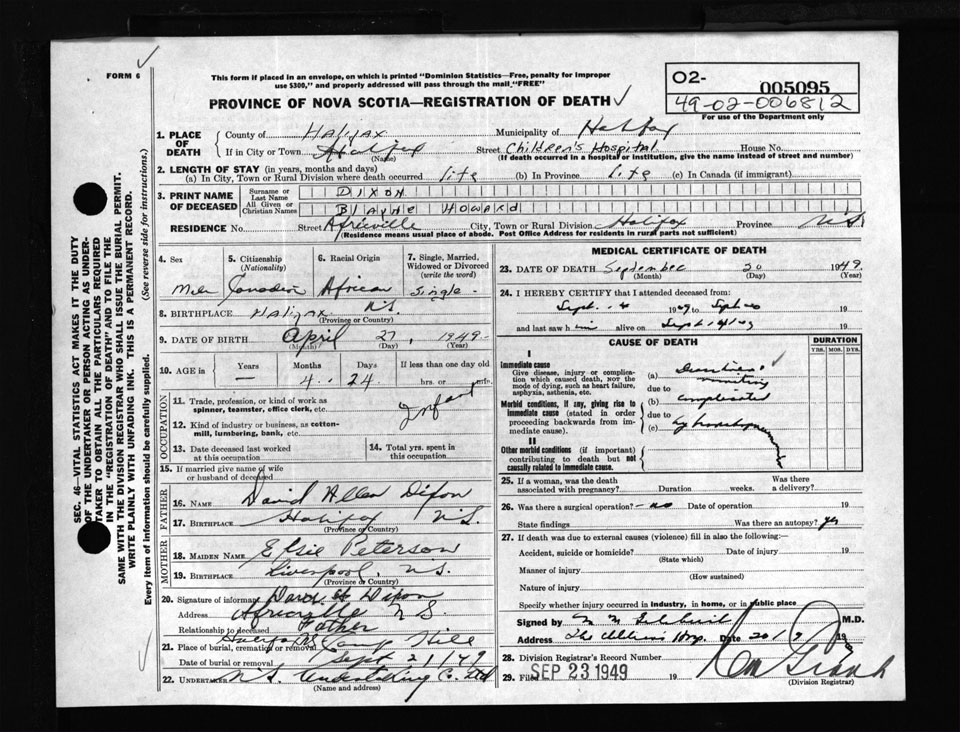 FORM 6
This form if placed in an envelope, on which is printed "Dominion Statistics—Free, penalty for improper
use $300," and properly addressed will pass through the mail "FREE"
PROVINCE OF NOVA SCOTIA—REGISTRATION OF DEATH
O2-
005095
49-02-006812
For use of the Department only
1. PLACE OF DEATH
County of Halifax
Municipality of Halifax
If in City or Town Halifax
(Name)
Street Children's Hospital House No.
(If death occurred in a hospital or institution, give the name instead of street and number)
2. LENGTH OF STAY (in years, months and days)
(a) In City, Town or Rural Division where death occurred life (b) In Province Life (c) In Canada (if immigrant)
3. PRINT NAME OF DECEASED
Surname or Last Name DIXON
All Given or Christian Names BLAYNE HOWARD
RESIDENCE No. Street Africville City, Town or Rural Division Halifax Province N.S.
(Residence means usual place of abode. Post Office Address for residents in rural parts not sufficient)
4. Sex
Male
5. Citizenship (Nationality)
Canadian
6. Racial Origin
African
7. Single, Married, Widowed or Divorced (write the word)
Single
8. BIRTHPLACE Halifax N.S.
(Province or Country)
9. DATE OF BIRTH April 27, 1949
(Month) (Day) (Year)
10. AGE in Years Months Days If less than one day old
— 4 24 hrs. or min.
OCCUPATION
11. Trade, profession, or kind of work as
spinner, teamster, office clerk, etc. Infant
12. Kind of industry or business, as cotton-
mill, lumbering, bank, etc.
13. Date deceased last worked
at this occupation
14. Total yrs. spent in
this occupation.
15. If married give name of wife
or husband of deceased
FATHER
16. NAME David Allen Dixon
17. BIRTHPLACE Halifax N.S.
(Province or Country)
MOTHER
18. MAIDEN NAME Elsie Peterson
19. BIRTHPLACE Liverpool, N.S.
(Province or Country)
20. Signature of informant David A Dixon
Address Africville N S.
Relationship to deceased Father
21. Place of burial, cremation or removal Halifax Camp Hill
Date of burial or removal Sept 21/49
22. UNDERTAKER N.S. Undertaking Co. Ltd
(Name and address)
MEDICAL CERTIFICATE OF DEATH
23. DATE OF DEATH September 20 1949.
(Month) (Day) (Year)
24. I HEREBY CERTIFY that I attended deceased from:
Sept. 19 19
and last saw him alive on 19
CAUSE OF DEATH
DURATION
YRS. MOS. DYS.
I
Immediate cause
Give disease, injury or complica-
tion which caused death, NOT the
mode of dying, such as heart failure,
asphyxia, asthenia, etc.
(a)
due to vomiting
Morbid conditions, if any, giving rise to
immediate cause (stated in order
proceeding backwards from im-
mediate cause).
(b) complicated
due to
(c) by
II
Other morbid conditions (if important)
contributing to death but not
causally related to immediate cause.
25. If a woman, was the death
associated with pregnancy? Duration weeks. Was there
a delivery?
26. Was there a surgical operation?— no Date of operation 19
State findings Was there an autopsy? yes
27. If death was due to external causes (violence) fill in also the following:—
Accident, suicide or homicide? Date of injury 19
(State which)
Manner of injury
(How sustained)
Nature of injury
Specify whether injury occurred in industry, in home, or in public place
Signed by M.D.
Address The Children's Hosp. Date 20/9 19
28. Division Registrar's Record Number
29. Filed SEP 23 1949 19
(Division Registrar)
SEC. 46—VITAL STATISTICS ACT MAKES IT THE DUTY
OF THE UNDERTAKER OR PERSON ACTING AS UNDER-
TAKER TO OBTAIN ALL THE PARTICULARS REQUIRED
IN THE "REGISTRATION OF DEATH" AND TO FILE THE
SAME WITH THE DIVISION REGISTRAR WHO SHALL ISSUE THE BURIAL PERMIT.
WRITE PLAINLY WITH UNFADING INK. THIS IS A PERMANENT RECORD.
Every item of information should be carefully supplied. (See reverse side for instructions.)